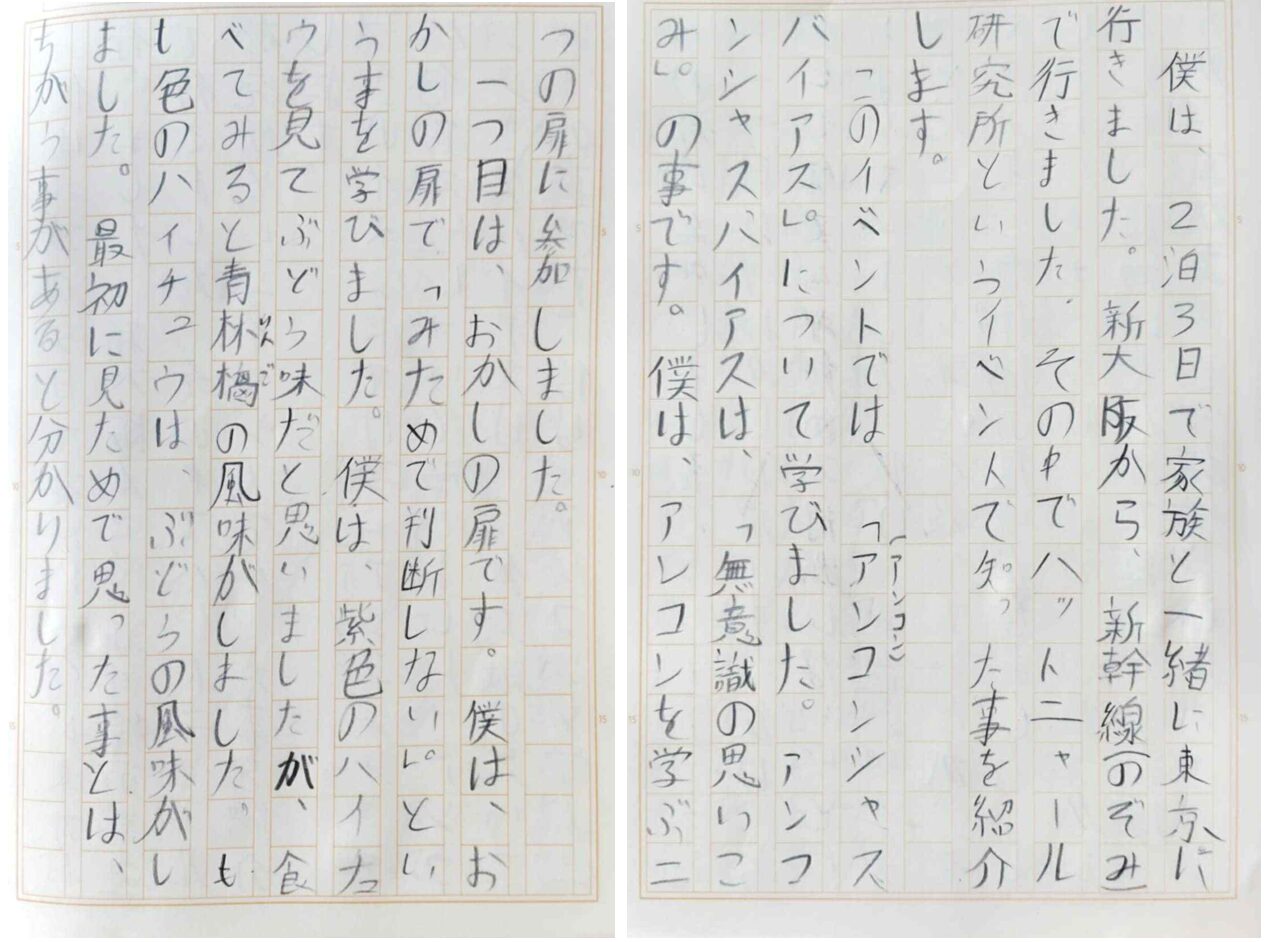 僕は、2泊3日で家族と一緒に東京に
行きました。新大阪から、新幹線(のぞみ)
で行きました。その中でハットニャール
研究所というイベントで知った事を紹介
します。
このイベントでは、「アンコンシャス
(アンコン)
バイアス」について学びました。アンコ
ンシャスバイアスは、「無意識の思いこ
み」の事です。僕は、アンコンを学ぶ二
つの扉に参加しました。
一つ目は、おかしの扉です。僕は、お
かしの扉で「みためで判断しない」とい
うまを学びました。僕は、紫色のハイチュ
ウを見てぶどう味だと思いましたが、食
べてみると青林檎の風味がしました。も
りんご
も色のハイチュウは、ぶどうの風味がし
ました。最初に見ためで思った事とは、
ちがう事があると分かりました。